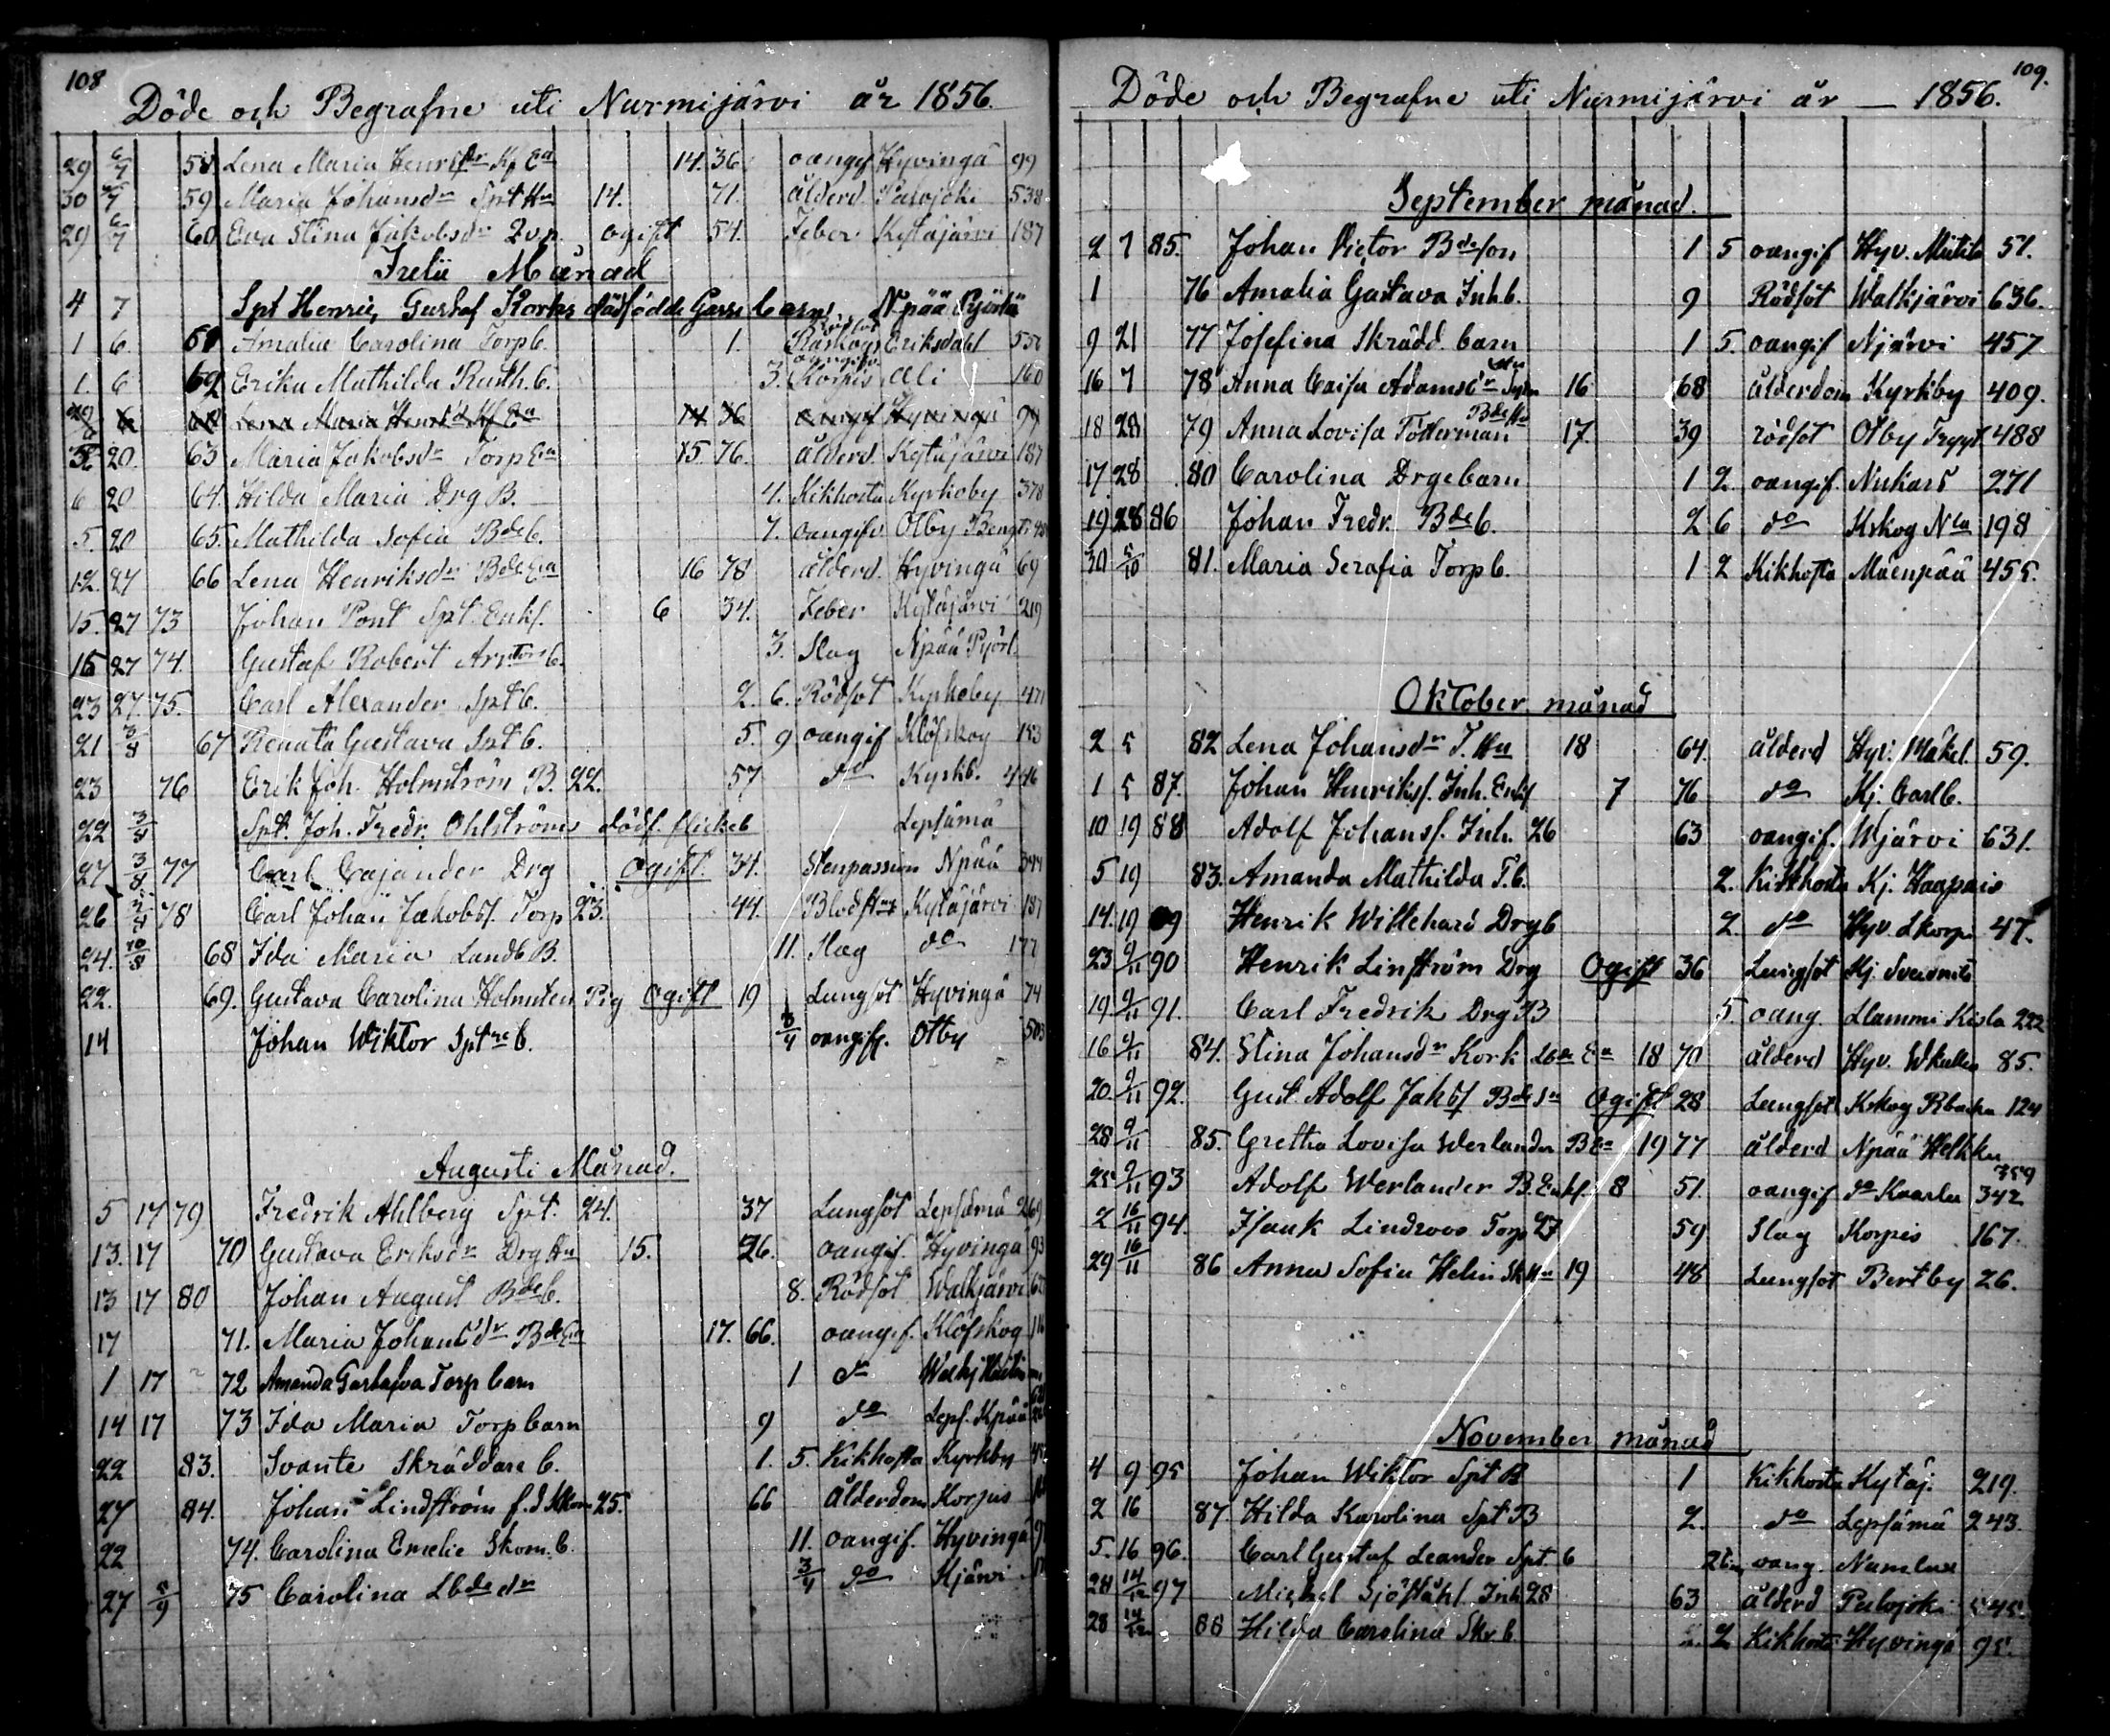 108
Döde och Begrafne uti Nurmijärvi år 1856.
29 6/7 58. Lena Maria Henrsdr Kf Ea 14. 36. oangif Hyvingä 99
30 6/7 59 Maria Johansdr Spt Hu 14. 71. ålderd Palojoki 538
29 6/7 60 Eva Stina Jakobsdr ogift 54. Feber Kytäjärvi 187
Julii Månad
4 7 Spt Henric Gustaf Korks dödfödde Gosse barn Npää
1 6. Amalia Carolina Torp b. 1. Eriksdahl
1. 6 62 Erika Mathilda Rusth. b. 3. Korpis Ali 160
29 6 Lena Maria Henrsdr Kf Ea 14 36 oangif Hyvingä 99
20. 63 Maria Jakobsdr Torp Ea 15. 76. ålderd. Kytäjärvi 187
6 20 64. Hilda Maria Drg B. 4. Kikhosta Kyrkoby 378
5. 20 65. Mathilda Sofia Bde b. 7. oangifv Otby Bengts
12. 27 66 Lena Henriksdr Bde Ea 16 78 ålderd. Hyvingä 69
15. 27 73 Johan Pont Spt. Enkl. 6 34. Feber Kytäjärvi 219
15 27 74. Gustaf Robert b. 3. Slag Npää Pyörl.
23 27. 75. Carl Alexander Spt b. 2. 6. Rödsot Kyrkoby 471
21 3/8 67 Renata Gustava Spt b. 5. 9 oangif Klöfskog 153
23 76 Erik Joh. Holmström B. 22. 57 do Kyrkb. 446
22 3/8 Spt. Joh. Fredr. Ohlströms dödf. flickeb Lepsämä
27 3/8 77 Carl Cajander Drg Ogift. 34. Stenpassion Npää 344
26 3/8 78 Carl Johan Jakobss. Torp 23. 44. Kytäjärvi 187
24. 10/8 68 Ida Maria Landb B. 11. Slag do 177
22. 69. Gustava Carolina Holmsten Pig Ogift 19 Lungsot Hyvingä 74
14 Johan Wiktor Sptre b. 3/4 oangif. Otby 503
Augusti Månad.
5 17 79 Fredrik Ahlberg Spt. 24. 37 Lungsot Lepsämä 269
13. 17 70 Gustava Eriksdr Drg Hu 15. 26. oangif. Hyvingä 93
13 17 80 Johan August Bde b. 8. Rödsot Walkjärvi
17 71. Maria Johansdr Bde Ea 17. 66. oangif. Klöfskog
1 17 72 Amanda Gustafva Torp barn 1 do Walkj
14 17 73 Ida Maria Torp barn 9 do Leps. Kpää
22 83. Svante Skräddare b. 1. 5. Kikhosta Kyrkby
27 84. Johan Lindström f.d. Skom 25. 66 ålderdom Korpis
22 74. Carolina Emelie Skom. b. 11. oangif. Hyvingä
27 5/9 75 Carolina Lbde dr 3/4 do Njärvi
109.
Döde och Begrafne uti Nurmijärvi år — 1856.
September månad.
2 7 85. Johan Victor Bdeson 1 5 oangif Hyv. 51.
1 76 Amalia Gustava Inh b. 9 Rödsot Walkjärvi 636.
9 21 77 Josefina Skrädd. barn 1 5. oangif Njärvi 457
16 7 78 Anna Caisa Adamsdr 16 68 ålderdom Kyrkby 409.
18 28 79 Anna Lovisa Tötterman Bde Hu 17. 39 rödsot Otby 488
17 28 80 Carolina Drgebarn 1 2. oangif. Nukars 271
19 28 86 Johan Fredr. Bde b. 2 6 do Kskog Nla 198
30 5/10 81. Maria Serafia Torp b. 1 2 Kikhosta Mäenpää 455.
Oktober månad
2 5 82 Lena Johansdr T. Hu 18 64. ålderd Hyv. Mäkel. 59.
1 5 87. Johan Henrikss. Inh. Enkl 7 76 do Kj. Carlb.
10 19 88 Adolf Johanss. Inh. 26 63 oangif. Wjärvi 631.
5 19 83. Amanda Mathilda T. b. 2. Kikhosta Kj. Haapais
14. 19 89 Henrik Willehard Drg b 2. do Hyv. Lkorp 47.
23 9/11 90 Henrik Linström Drg Ogift 36 Lungsot Kj.
19 9/11 91. Carl Fredrik Drg B 5. oang. Llammi Kisla 222
16 9/11 84. Stina Johansdr Kork Ea 18 70 ålderd Hyv. 85.
20. 9/11 92. Gust. Adolf Jakbs Bde Sn Ogift 28 Lungsot Kskog Rbacka 124
28 9/11 85. Gretha Lovisa Werlander B Ea 19 77 ålderd Npää Helkku 359
25 9/11 93 Adolf Werlander B. Enkl. 8 51. oangif do Kvarla 342
2 16/11 94. Isaak Lindroos Torp 27 59 Slag Korpis 167.
29 16/11 86 Anna Sofia Helin Sk Hu 19 48 Lungsot Bertby 26.
November månad
4 9 95 Johan Wiktor Spt B 1 Kikhosta Kytäj. 219.
2 16 87 Hilda Karolina Spt B 2. do Lepsämä 243.
5. 16 96. Carl Gustaf Leander Spt. b oang. Numlax
28 14/12 97 Michel Sjöståhl Inh 28 63 ålderd Palojoki 545.
28 14/12 88 Hilda Carolina Skr b. 2 Kikhosta Hyvingä 95.